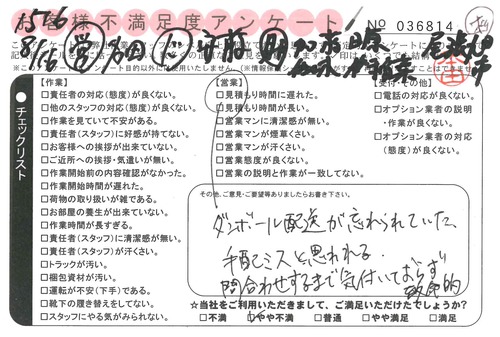 お客様不満足度アンケート
No 036814
【作業】
□責任者の対応(態度)が良くない。
□他のスタッフの対応(態度)が良くない。
□作業を見ていて不安がある。
□責任者(スタッフ)に好感が持てない。
□お客様への挨拶が出来ていない。
□ご近所への挨拶・気遣いが無い。
□作業開始前の内容確認がなかった。
□作業開始時間が遅れた。
□荷物の取り扱いが雑である。
□お部屋の養生が出来ていない。
□作業時間が長すぎる。
□責任者(スタッフ)に清潔感が無い。
□責任者(スタッフ)が汗くさい。
□トラックが汚い。
□梱包資材が汚い。
□運転が不安(下手)である。
□靴下の履き替えをしてない。
□スタッフにやる気がみられない。
【営業】
□見積もり時間に遅れた。
□見積もり時間が長い。
□営業マンに清潔感が無い。
□営業マンが煙草くさい。
□営業マンが汗くさい。
□営業態度が良くない。
□営業の説明と作業が一致してない。
【受付・その他】
□電話の対応が良くない。
□オプション業者の説明
・作業が良くない。
□オプション業者の対応
(態度)が良くない。
チェックリスト
その他、ご意見・ご要望等ありましたらお書き下さい。
ダンボール配送が忘れられていた、
手配ミスと思われる.
問合わせするまで気付いておらず
致命的
☆当社をご利用いただきまして、ご満足いただけたでしょうか?
□不満 □やや不満 □普通 □やや満足 □満足